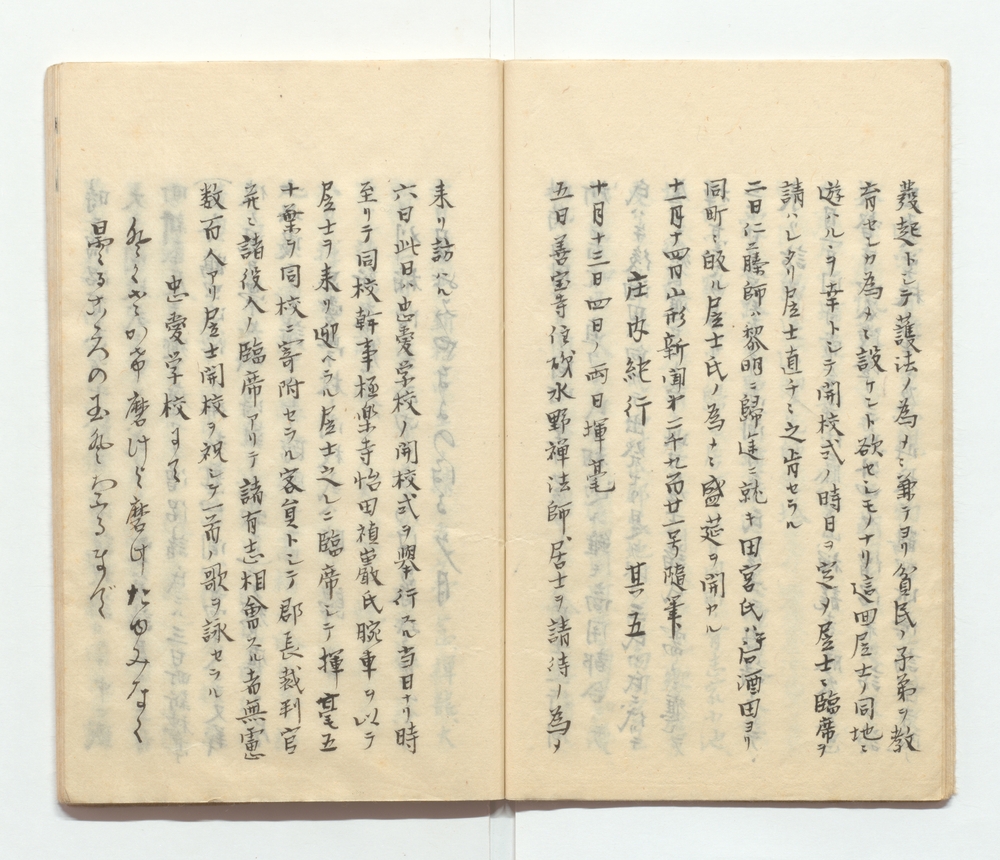 發起トシテ護法ノ為メニ兼テヨリ貧民ノ子弟ヲ教
育センカ為メニ設ケント欲セシモノナリ這回居士ノ同地ニ
遊ハルヽヲ幸トシテ開校式ノ時日ヲ定メ居士ニ臨席ヲ
請ハレタリ居士直チニ之ヲ肯セラル
二日仁藤師ハ黎明ニ歸途ニ就キ田宮氏ハ午后酒田ヨリ
同町ニ皈ル居士氏ノ為メニ盛莚ヲ開カル
十二月十四日山形新聞第二千九百廿一号隨筆
庄内紀行 其五
十月十三日四日ノ両日揮毫
五日善宝寺住職水野禅法師居士ヲ請待ノ為メ
来リ訪ハル
六日此日ハ忠愛学校ノ開校式ヲ舉行スル当日ナリ時
至リテ同校幹事極楽寺怡田禎巖氏腕車ヲ以テ
居士ヲ来リ迎ヘラル居士之レニ臨席シテ揮毫五
十葉ヲ同校ニ寄附セラル客員トシテ郡長裁判官
并ニ諸役人ノ臨席アリテ諸有志相會スル者無慮
数百人アリ居士開校ヲ祝シテ一首ノ歌ヲ詠セラル
忠愛学校にて
磨け磨け たゆみなく
まで